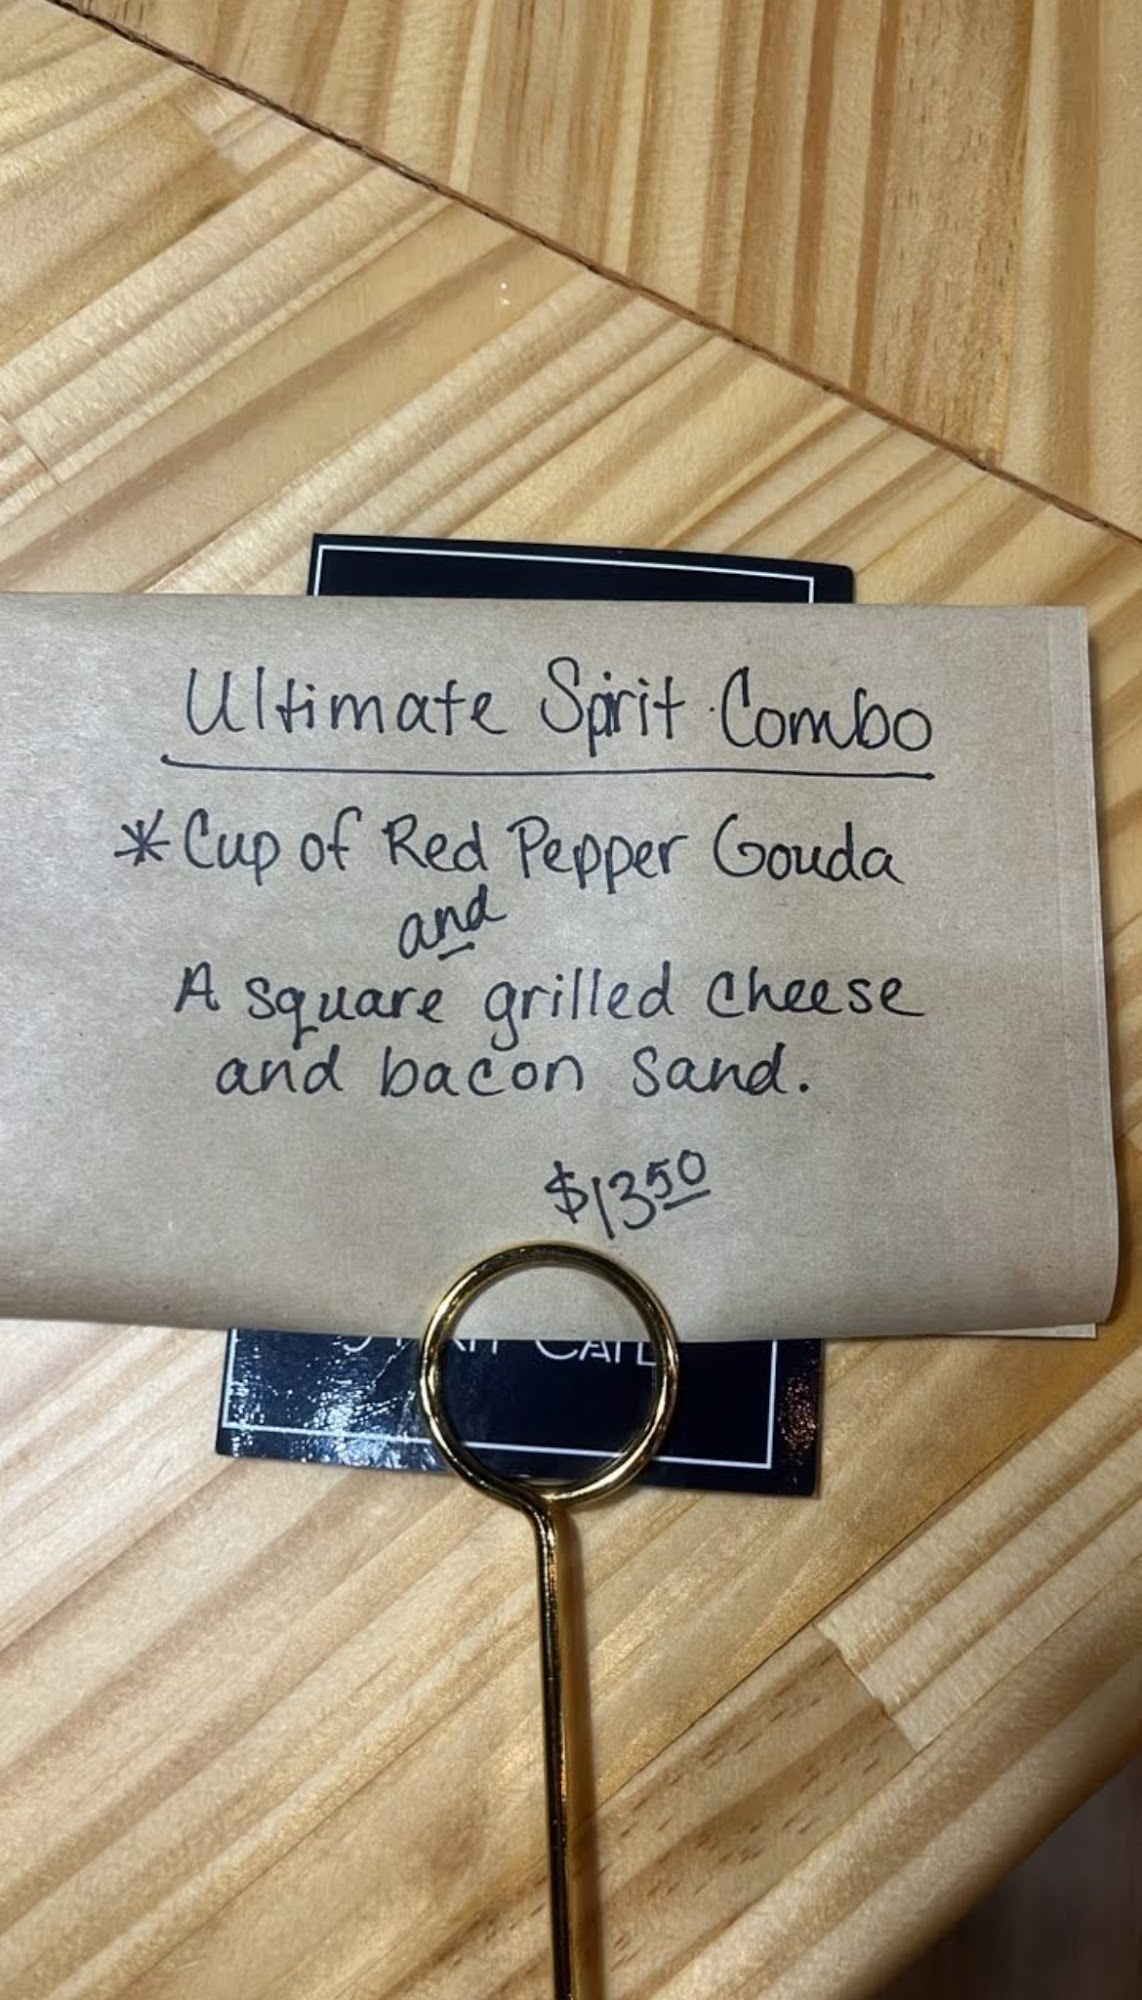 Ultimate Spirit Combo
* Cup of Red Pepper Gouda
and
A square grilled cheese
and bacon sand.
$13.50